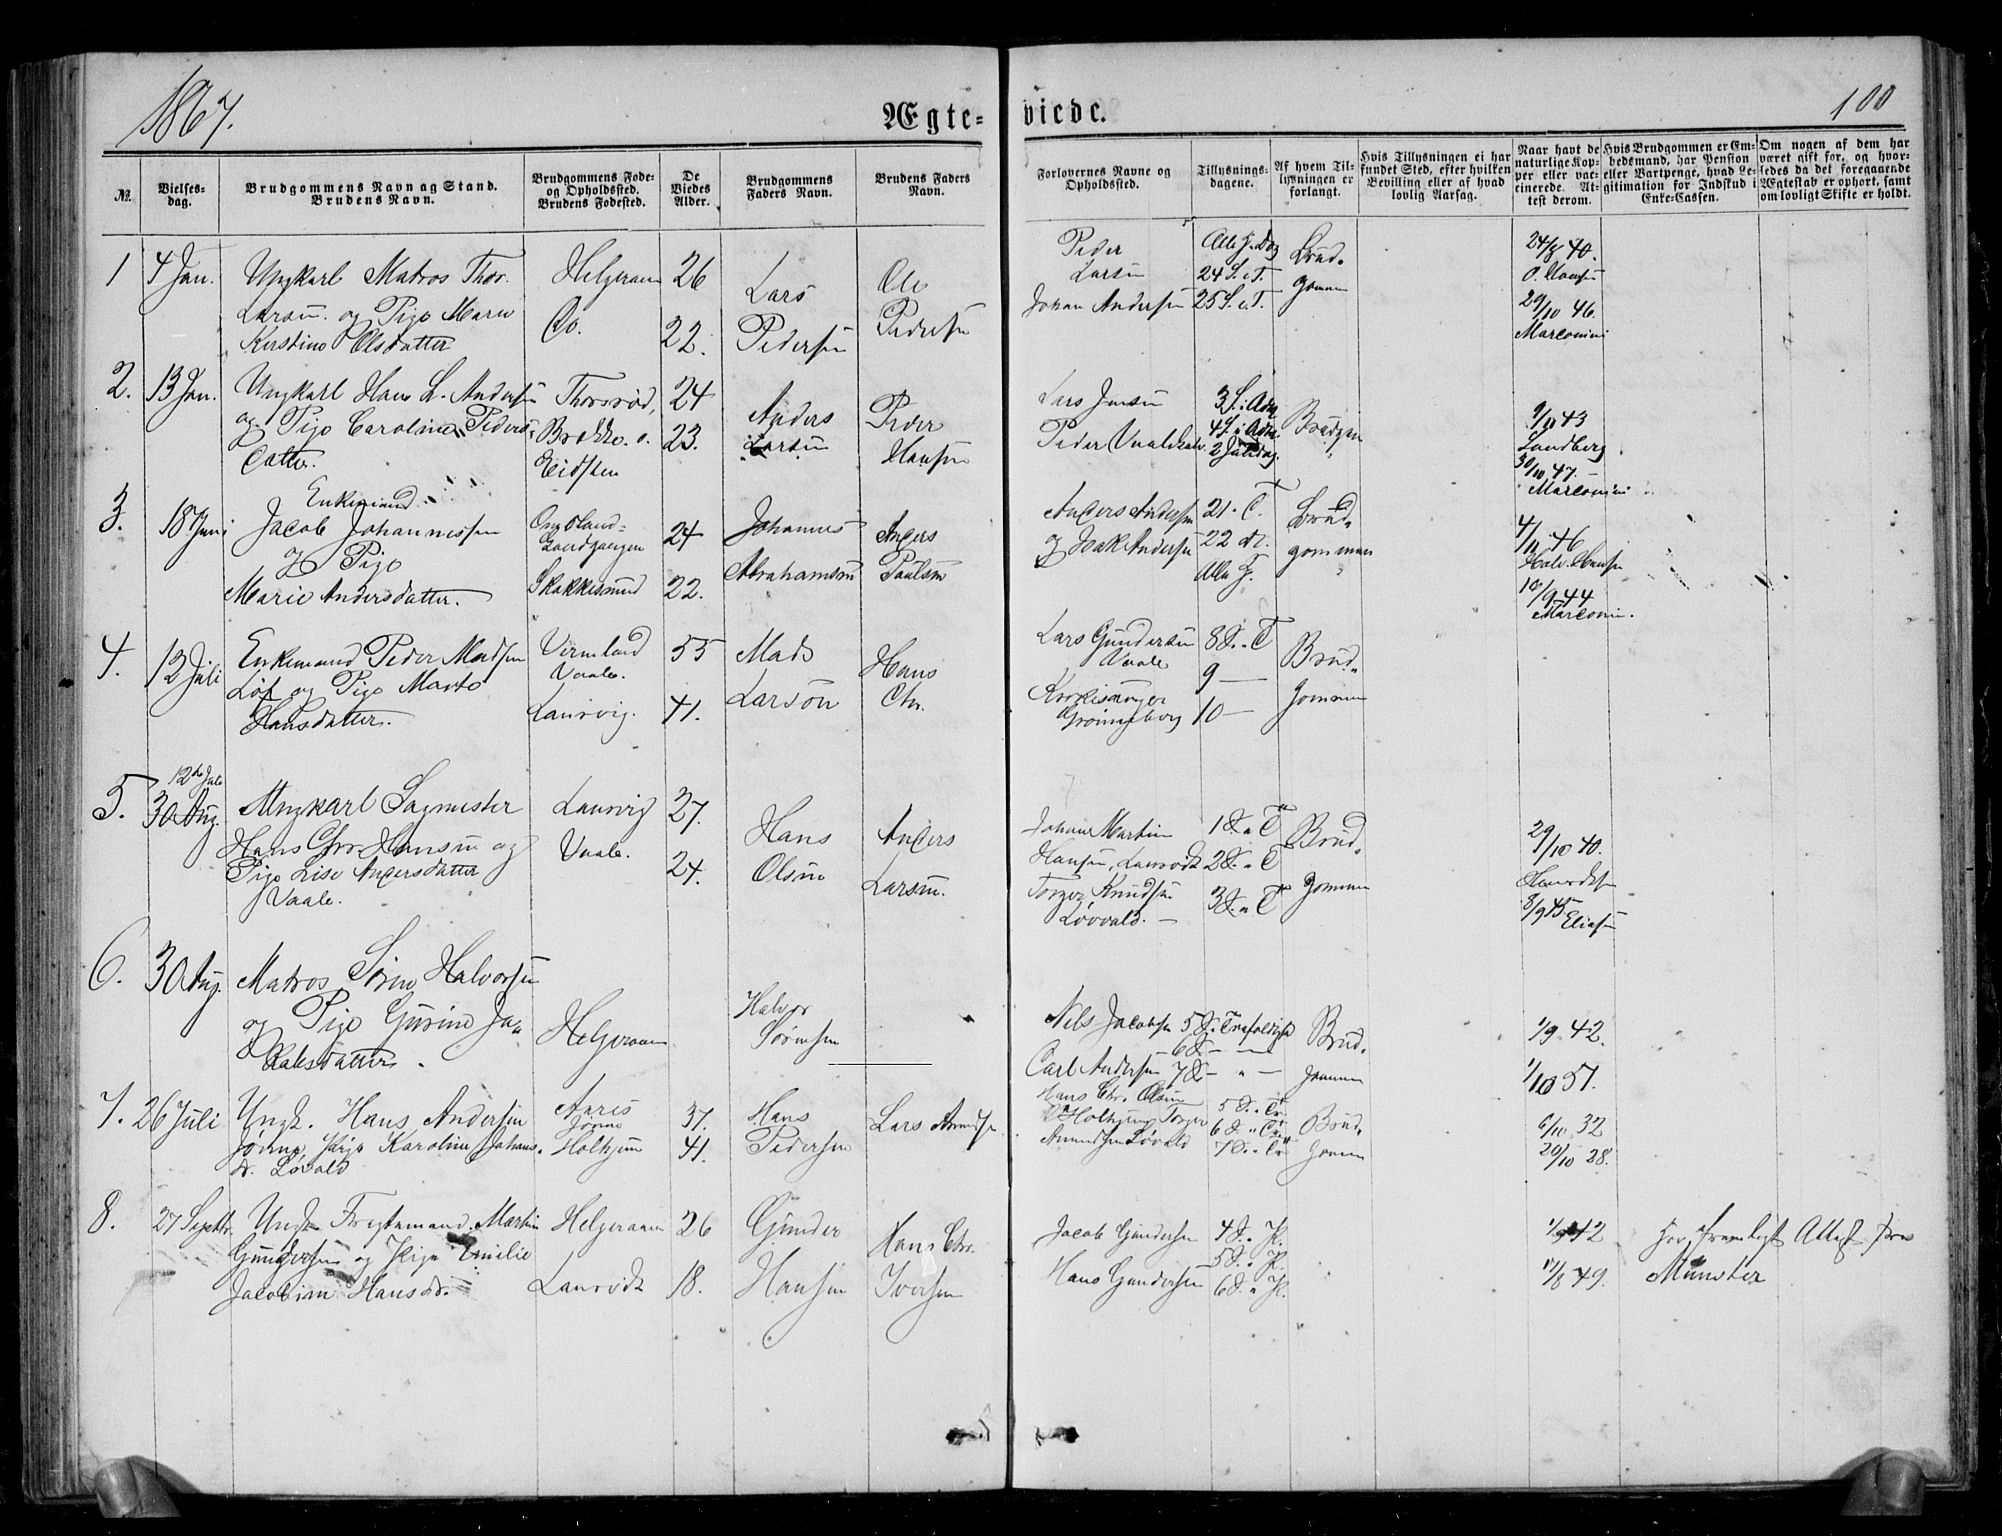 1867.
Ægte-
viede.
100
No.
Vielses-
dag.
Brudgommens Navn ag Stand.
Brudens Navn.
Brudgommens Føde-
og Opholdssted.
Brudens Fødested.
De
Viedes
Alder.
Brudgommens
Faders Navn.
Brudens Faders
Navn.
Forlovernes Navne og
Opholdssted.
Tillysnings-
dagene.
Af hvem Til-
lysningen er
forlangt.
Hvis Tillysningen ei har
fundet Sted, efter hvilken
Bevilling eller af hvad
lovlig Aarsag.
Naar havt de
naturlige Kop-
per eller vac-
cinerede. At-
test derom.
Hvis Brudgommen er Em-
bedsmand, har Pension
eller Vartpenge, hvad Le-
gitimation for Indskud i
Enke-Cassen.
Om nogen af dem har
været gift før, og hvor-
ledes da det foregaaende
Ægteskab er ophørt, samt
om lovligt Skifte er holdt.
1
4 Jan.
Ungkarl Matros Thor
Larsen og Pige Maren
Kirstine Olsdatter
Helgeraaen
Do.
26
22.
Lars
Pedersen
Ole
Pedersen
Peder
Larsen
Johan Andersen
24 S. e. T.
25 S. e. T.
Brud-
gommen
24/8 40.
O. Hansen
29/10 46.
2.
13 Jan.
Ungkarl Hans L. Andersen
og Pige Caroline Peders-
datter.
Thorsrød,
Eidsten
24
23.
Anders
Larsen
Peder
Hansen
Lars Jensen
Peder
3 S. i Adv.
4 S. i Adv.
2 Juledag
Brudgom
9/11 43
Sundberg
30/10 47.
3.
18 Juni
Enkemand
Jacob Johannessen
og Pige
Marie Andersdatter.
24
22.
Johannes
Abrahamsen
Anders
Paulsen
Anders Andersen
og Isak Andersen
21. T.
22 do.
Brud-
gommen
4/11 46
Halv. Hansen
10/9 44
4.
12 Juli
Enkemand Peder Madsen
Løf og Pige Marte
Hansdatter.
Vermland
Vaale.
Laurvig.
55
41.
Mads
Larsøn
Hans
Chr.
Lars Gundersen
Vaale
8 S. e. T
9 —
10 —
Brud-
gommen
5.
12te Jul
30 Aug.
Ungkarl Sagmester
Hans Chr. Hansen og
Pige Lise Andersdatter
Vaale.
Laurvig
Vaale.
27.
24.
Hans
Olsen
Anders
Larsen.
Johan Martin
Hansen, Laurvig
Torger Knudsen
Løvvald. —
1 S. e. T
2 S. e. T
3 S. e. T
Brud-
gommen
29/10 40.
8/9 45 Eliasen
6.
30 Aug.
Matros Søren Halvorsen
og Pige Gurine Ja-
kobsdatter.
Helgeraaen
Halvor
Sørensen
Nils Jacobsen
Carl Andersen
5 S. Trefoldigh.
6 S. — —
7 S. — " —
Brud-
gommen
1/9 42.
1/10 51.
7.
26 Juli
Ungk. Hans Andersen
Jørine, Pige Karoline Johans-
dr. Løvald
37.
41.
Hans
Pedersen
Lars Amundsen
Hans Chr. Olsen
Holtjem Torger
Amundsen Løvald
5 S. e. Tr
6 S. e. Tr
7 S. e. Tr
Brud-
gommen
6/10 32
20/10 28.
8.
27 Septbr.
Ungk. Fragtemand Martin
Gundersen og Pige Emilie
Jacobine Hansdr.
Helgeraaen
26
18.
Gunder
Hansen
Hans Chr.
Iversen
Jacob Gundersen
Hans Gundersen
4 S.
5 S.
6 S.
1/9 42
17/8 49.
Har fremlagt Attest fra
Munster